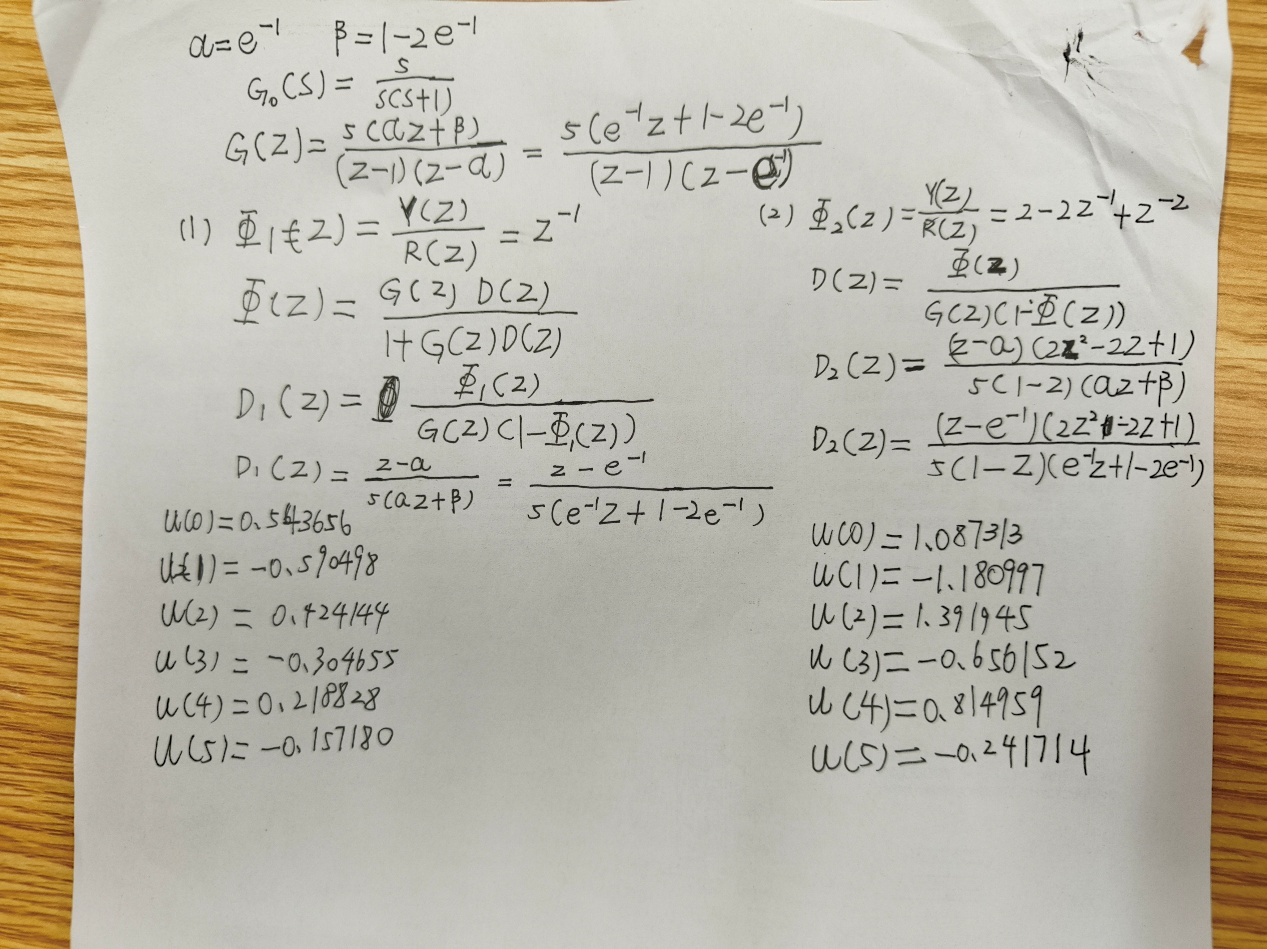 α=e⁻¹ β=1-2e⁻¹
G₀(S)= 5/(s(s+1))
G(Z)= 5(αz+β)/((z-1)(z-α)) = 5(e⁻¹z+1-2e⁻¹)/((z-1)(z-e⁻¹))
(1) Φ₁(z)= Y(Z)/R(Z) = z⁻¹
Φ(z)= G(z) D(z)/(1+G(z)D(z))
D₁(z)= Φ₁(z)/(G(z)(1-Φ₁(z)))
D₁(z)= (z-α)/(5(αz+β)) = (z-e⁻¹)/(5(e⁻¹z+1-2e⁻¹))
u(0)=0.543656
u(1)=-0.590498
u(2)=0.424144
u(3)=-0.304655
u(4)=0.218828
u(5)=-0.157180
(2) Φ₂(z)= Y(Z)/R(Z) = 2-2z⁻¹+z⁻²
D(z)= Φ(z)/(G(z)(1-Φ(z)))
D₂(z)= (z-α)(2z²-2z+1)/(5(1-z)(αz+β))
D₂(z)= (z-e⁻¹)(2z²-2z+1)/(5(1-z)(e⁻¹z+1-2e⁻¹))
u(0)=1.087313
u(1)=-1.180997
u(2)=1.391945
u(3)=-0.656152
u(4)=0.814959
u(5)=-0.241714